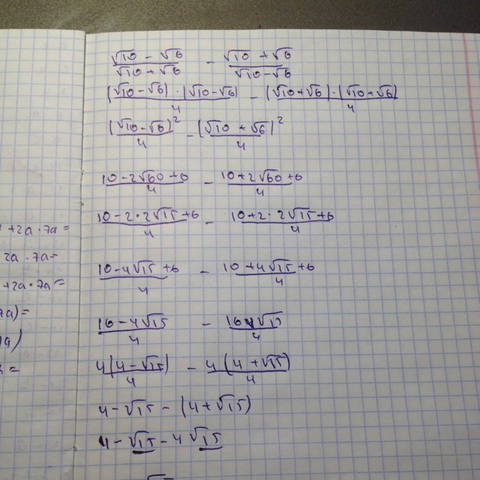 (√10 - √6)/(√10 + √6) - (√10 + √6)/(√10 - √6)
((√10 - √6) · (√10 - √6))/4 - ((√10 + √6) · (√10 + √6))/4
(√10 - √6)²/4 - (√10 + √6)²/4
(10 - 2√60 + 6)/4 - (10 + 2√60 + 6)/4
(10 - 2 · 2√15 + 6)/4 - (10 + 2 · 2√15 + 6)/4
(10 - 4√15 + 6)/4 - (10 + 4√15 + 6)/4
(16 - 4√15)/4 -
4(4 - √15)/4 - 4(4 + √15)/4
4 - √15 - (4 + √15)
4 - √15 - 4 √15
+ 2a · 7a =
2a · 7a =
+ 2a · 7a =
7a) =
a)
=